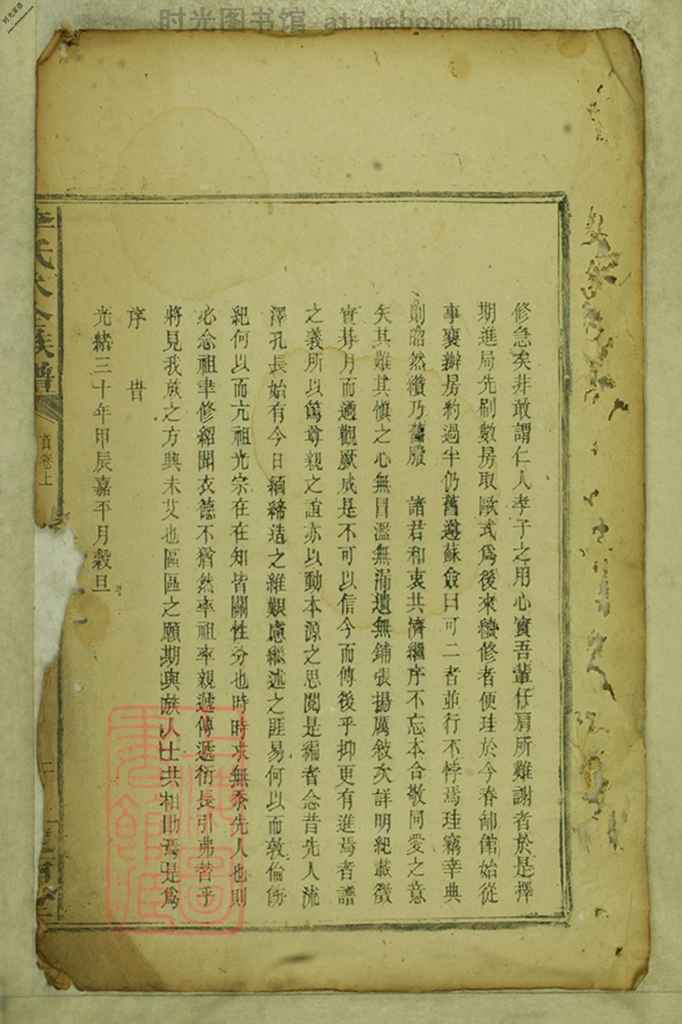 时光图书馆 atimebook.com
修急矣非敢謂仁人孝子之用心實吾輩仔肩所難謝者於是擇
期進局先刷數房取歐式為後來續修者便珪於今春卸館始從
事襄辦房約過半仍舊遵蘇僉曰可二者並行不悖焉珪竊幸典
則昭然纘乃舊服 諸君和衷共濟繼序不忘本合敬同愛之意
矣其難其慎之心無冒濫無漏遺無鋪張揚厲敍次詳明紀載徵
實朞月而遹觀厥成是不可以信今而傳後乎抑更有進焉者譜
之義所以篤尊親之誼亦以動本源之思閱是編者念昔先人流
澤孔長始有今日緬締造之維艱慮繼述之匪易何以而敦倫飭
紀何以而亢祖光宗在在知皆關性分也時時求無忝先人也則
必念祖聿修紹聞衣德不猶然率祖率親遞傳遞衍長引弗替乎
將見我族之方興未艾也區區之願期與族人士共相勖焉是為
序 旹
光緒三十年甲辰嘉平月穀旦
氏大全族譜
首卷上